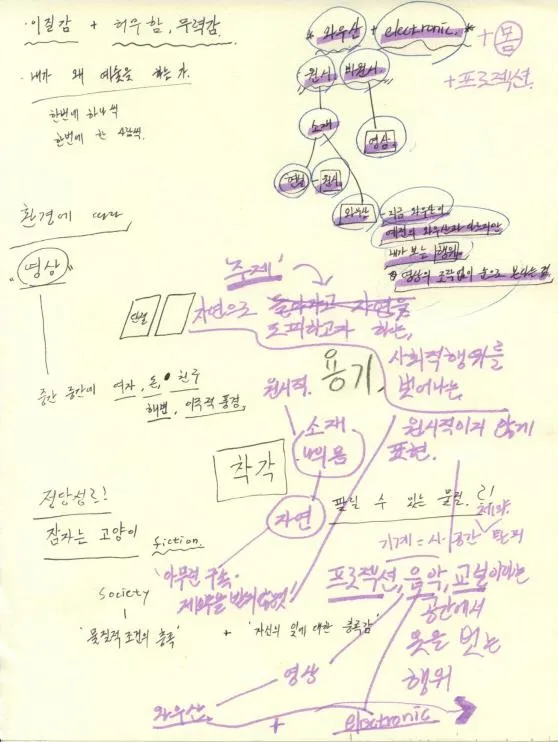 · 이질감 + 허무함, 무력감.
· 내가 왜 예술을 하는가.
한번에 하나씩
한번에 한 사람씩.
* 와우산 + electronic. *
+ 몸
+ 프로젝션.
원시 비원시.
소재
영상.
연필 - 원시
와우산 - 지금 와우산이
예전의 와우산과 다르지만
내가 보는 행위
영상의 조작없이 눈으로 본다는 점
환경에 따라
"영상"
'주제'
연필
자연으로 돌아가고 자연을
도피하고자 하는,
중간 중간에 여자, 돈, 친구
해변, 이국적 풍경,
원시적. 용기,
사회적행위를
벗어나는,
소재
나의몸
원시적이지 않게
표현.
착각
자연
정당성로!
잠자는 고양이
fiction.
팔릴 수 있는 물질.
제약.
기계 = 시·공간 탈피
'아무런 구속·
제약을 받지않것'
프로젝션, 음악, 교실이라는
공간에서
옷을 벗는
행위
society
'물질적 조건의 충족' + '자신의 일에 대한 만족감'
영상
와우산 + electronic